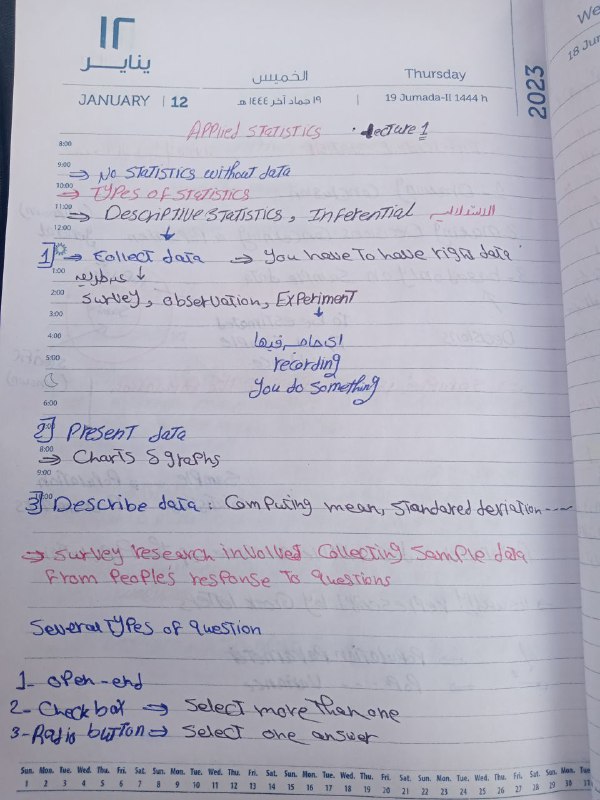 ١٢
يناير
الخميس
Thursday
JANUARY | 12
١٩ جماد آخر ١٤٤٤ هـ | 19 Jumada-II 1444 h
2023
We
18 Jum
APPlied STATISTICS • Lecture 1
8:00
9:00
⇒ No STATISTICS without data
10:00
⇒ TYPES of STATISTICS
11:00
⇒ DESCRIPTIVE STATISTICS, INferential الاستدلالي
12:00
1] ⇒ Collect data ⇒ You have To have right data
1:00
عن طريق
2:00
Survey, observation, Experiment
3:00
4:00
5:00
recording
You do something
6:00
2] Present data
8:00
⇒ Charts & graphs
9:00
3] Describe data: Computing mean, standared deviation ----
⇒ Survey research involled Collecting Sample data
From People's response To questions
Several Types of question
1- open-end
2- Check box ⇒ Select more Than one
3- Radio button ⇒ Select one answer
Sun. Mon. Tue. Wed. Thu. Fri. Sat. Sun. Mon. Tue. Wed. Thu. Fri. Sat. Sun. Mon. Tue. Wed. Thu. Fri. Sat. Sun. Mon. Tue. Wed. Thu. Fri. Sat. Sun. Mon. Tue.
1 2 3 4 5 6 7 8 9 10 11 12 13 14 15 16 17 18 19 20 21 22 23 24 25 26 27 28 29 30 31